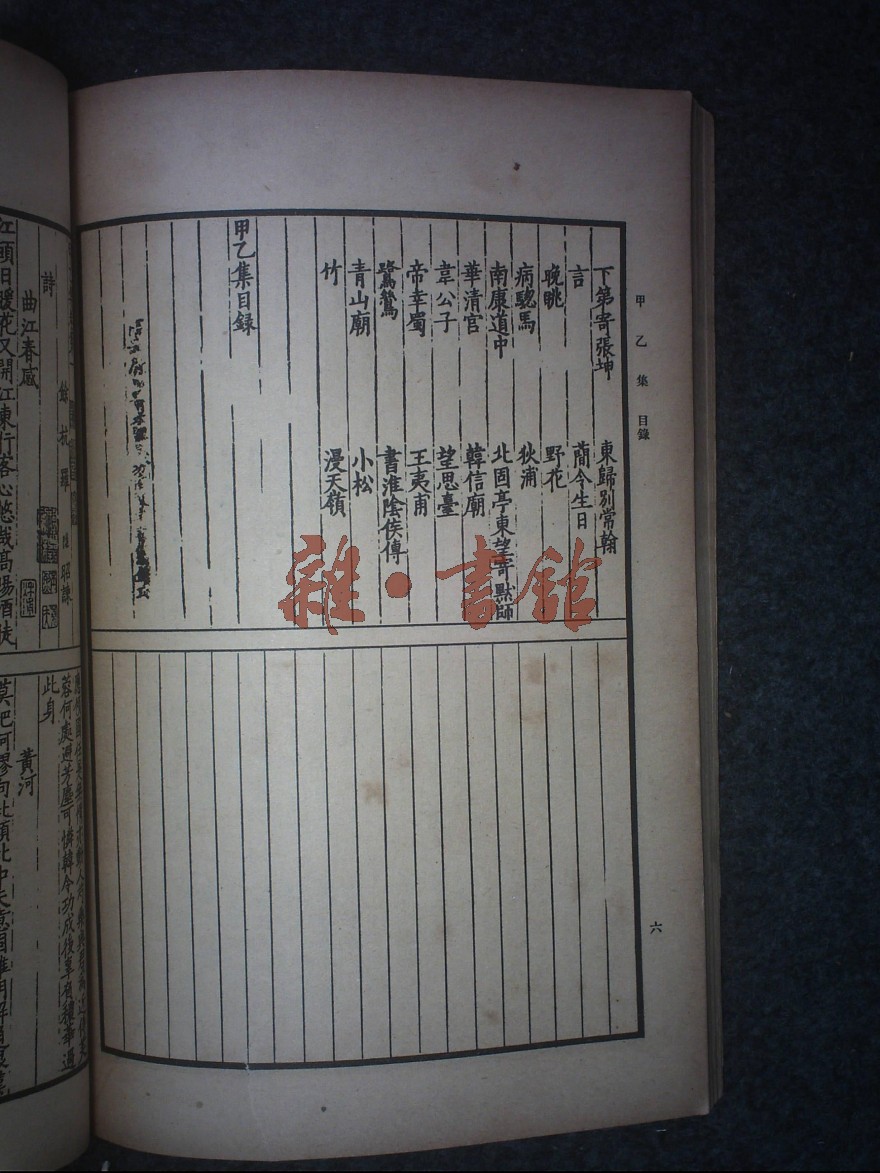 甲乙集 目錄
六
下第寄張坤 東歸別常翰
言 蘭令生日
晚眺 野花
病驄馬 狄浦
南康道中 北固亭東望寄默師
華清宮 韓信廟
韋公子 望思臺
帝幸蜀 王夷甫
鷺鷥 書淮陰侯傳
青山廟 小松
竹 漫天嶺
甲乙集目録
雜·書館
詩
曲江春感
江頭日暖花又開江東行客心悠哉高陽酒徒
蓉何處避芳塵可憐韓令功成後辜有穠華過
此身
黃河
莫把阿膠向此傾此中天意固難明解通